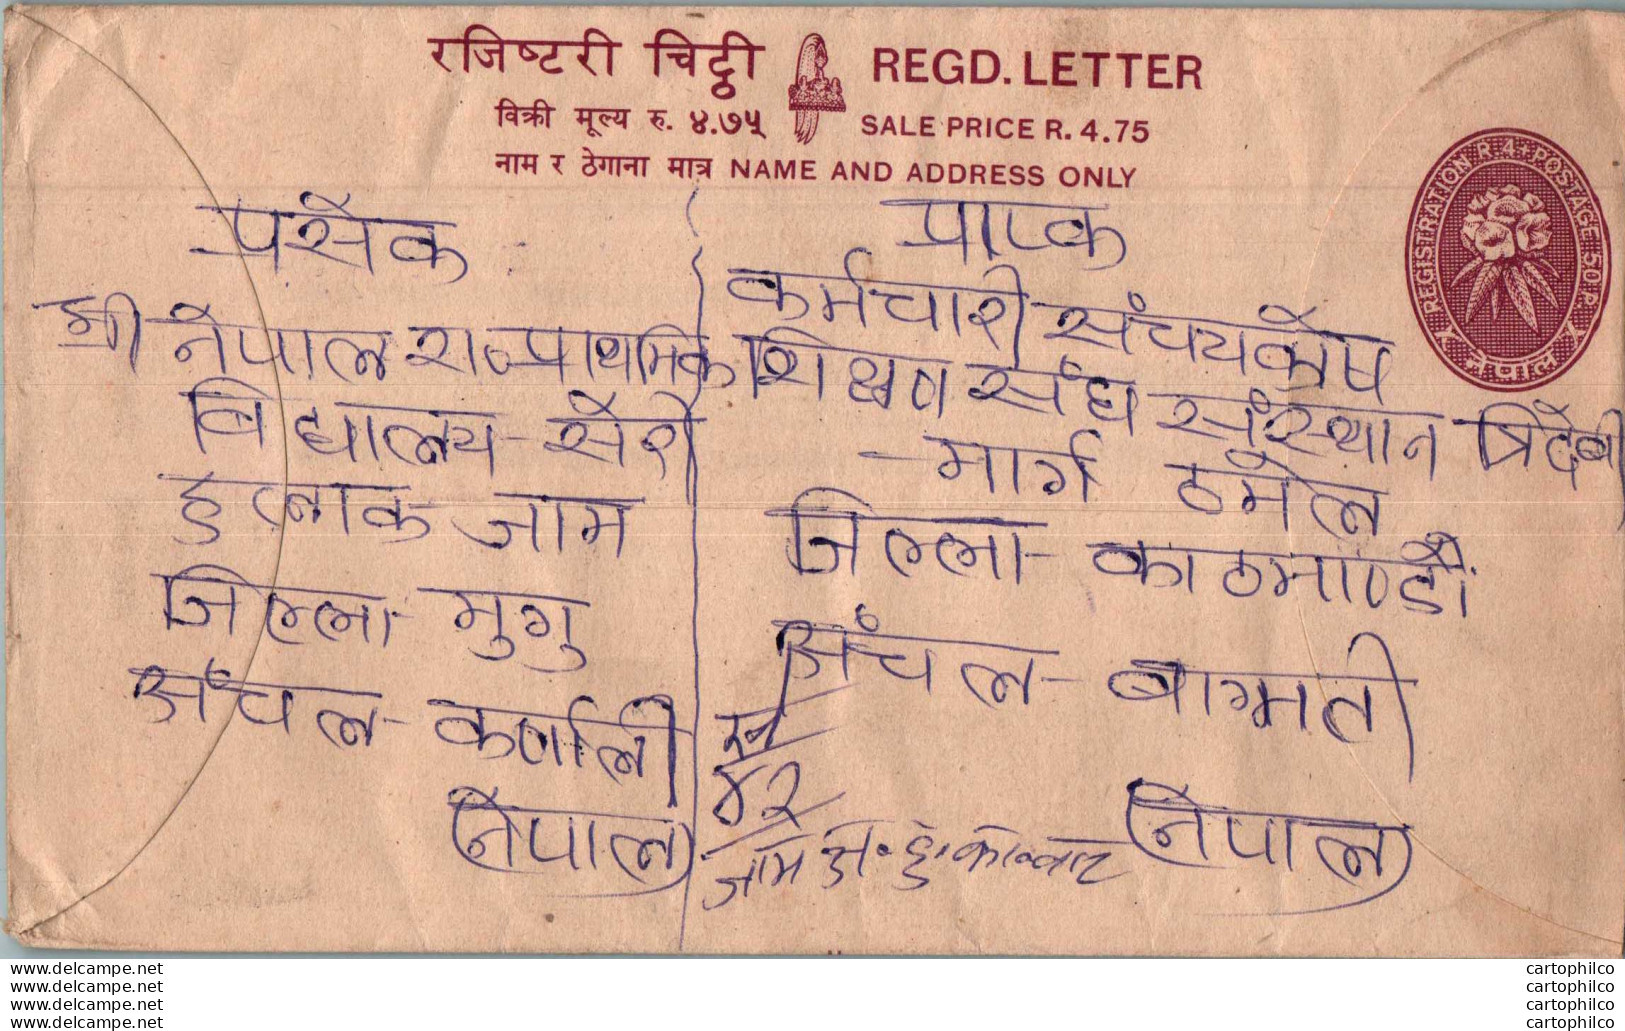 रजिष्टरी चिट्ठी REGD. LETTER
विक्री मूल्य रु. ४.७५ SALE PRICE R. 4.75
नाम र ठेगाना मात्र NAME AND ADDRESS ONLY
REGISTRATION R 4. POSTAGE. 50 P.
नेपाल
प्रसेक
श्री नेपाल रा० प्राथमिक
बिद्यालय - सेरी
हुलाक जाम
जिल्ला - मुगु
अंचल - कर्णाली
नेपाल
प्राप्क
कर्मचारी संचयकोष
शिक्षण संघ संस्थान त्रिदेबी
- मार्ग ठमेल
जिल्ला - काठमाण्डौं
अंचल - बाग्मती
नेपाल
४२
जाम अ. हु. का. बाट
www.delcampe.net
www.delcampe.net
www.delcampe.net
www.delcampe.net
cartophilco
cartophilco
cartophilco
cartophilco